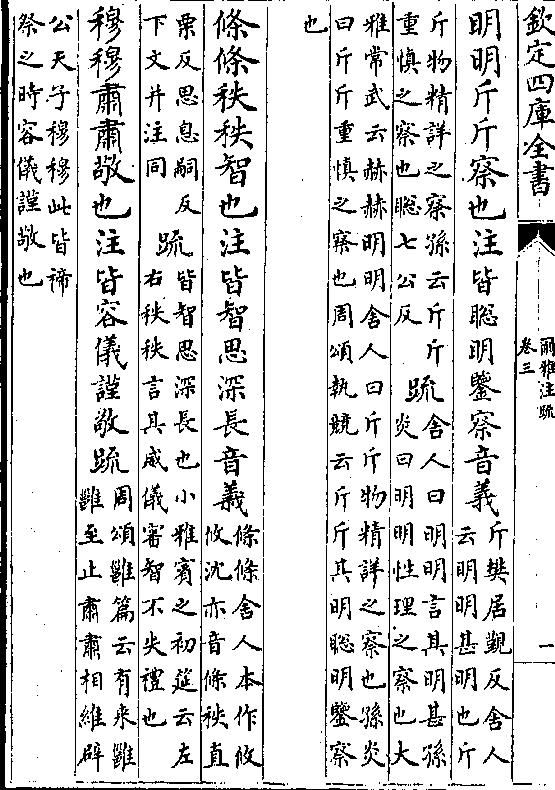 欽定四庫全書
爾雅注疏
卷三
一
明明斤斤察也注皆聰明鑒察音義
斤樊居覲反舍人
云明明甚明也斤
斤物精詳之察孫云斤斤
重慎之察也聰七公反
疏
舍人曰明明言其明甚孫
炎曰明明性理之察也大
雅常武云赫赫明明舍人曰斤斤物精詳之察也孫炎
曰斤斤重慎之察也周頌執競云斤斤其明聰明鑒察
也
條條秩秩智也注皆智思深長音義
條條舍人本作攸
攸沈亦音條秩直
栗反思息嗣反
下文并注同
疏
皆智思深長也小雅賓之初筵云左
右秩秩言其威儀審智不失禮也
穆穆肅肅敬也注皆容儀謹敬疏
周頌雝篇云有來雝
雝至止肅肅相維辟
公天子穆穆此皆禘
祭之時容儀謹敬也